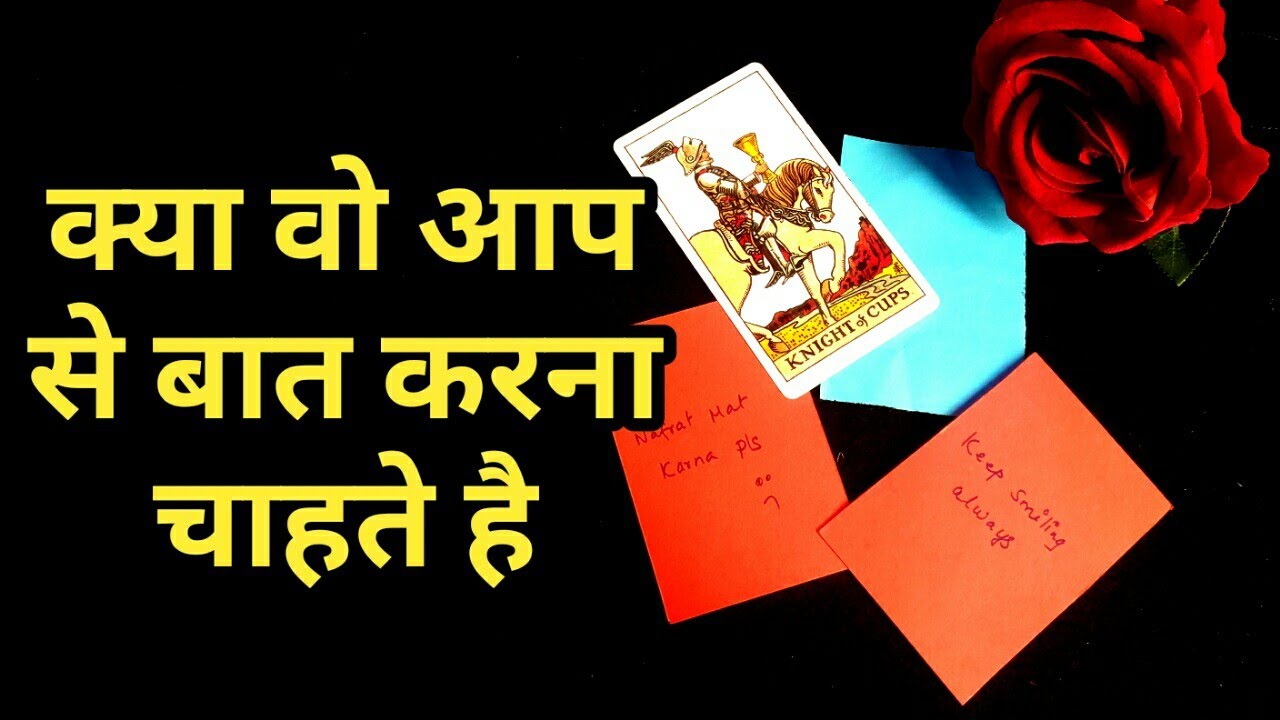 क्या वो आप
से बात करना
चाहते है
KNIGHT of CUPS
Nafrat Mat
Karna pls
Keep smiling
always